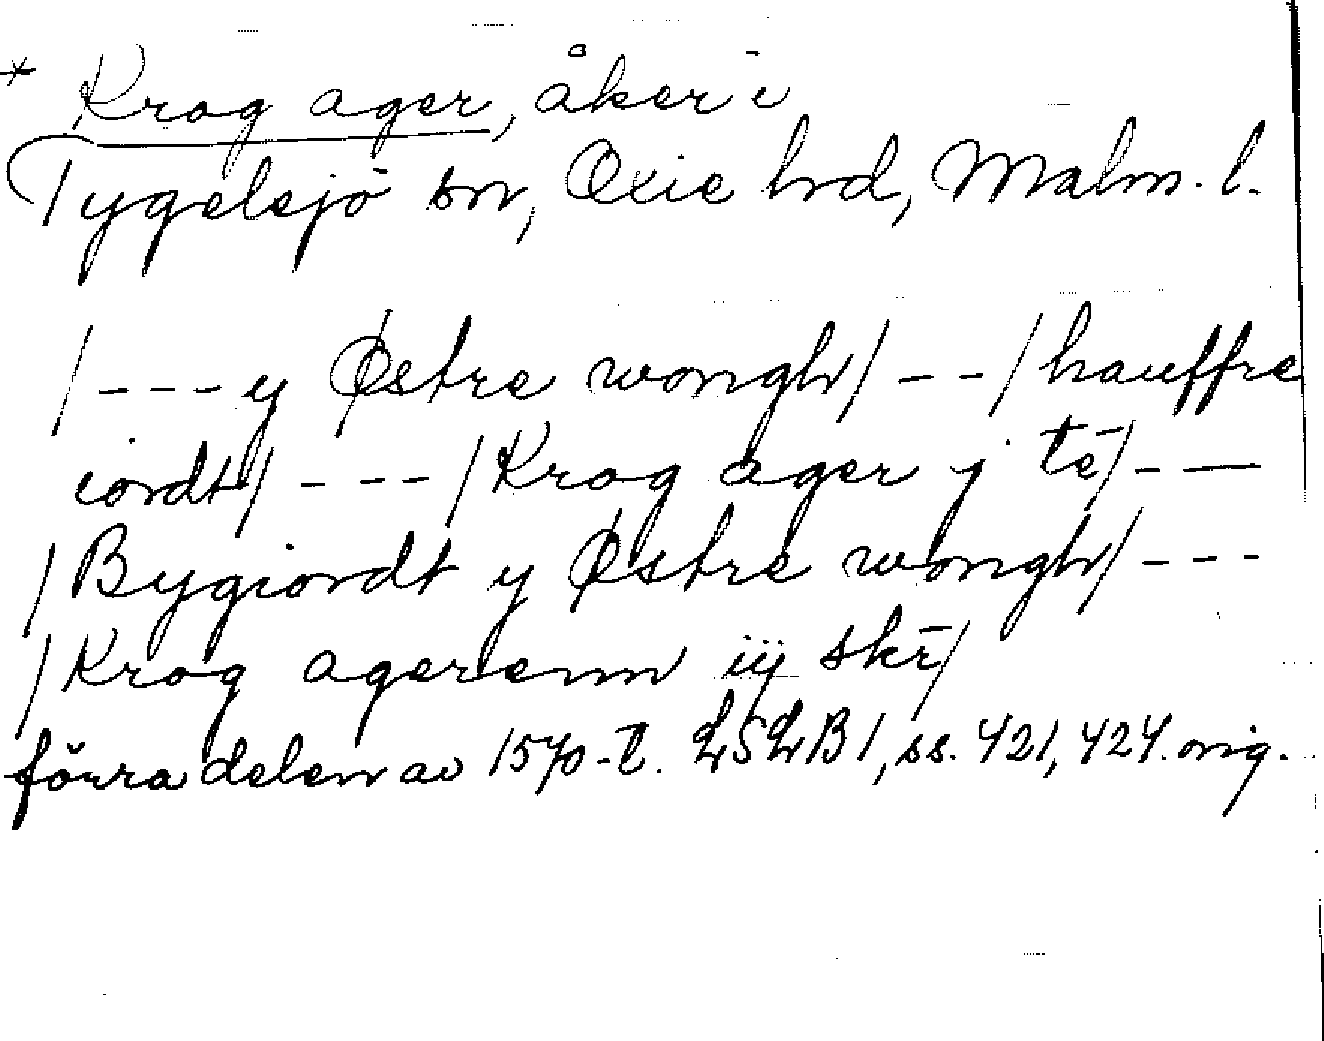 * Krog ager, åker i
Tygelsjö sn, Oxie hd, Malm. l.
/--- y Østre wongh/ -- /hauffre
iordt/ --- /Krog ager j tē/ --
/Bygiordt y Østre wongh/ ---
/Krog agerenn iij skē/
förra delen av 1570-t. LSLB1, ss. 421, 424. orig.